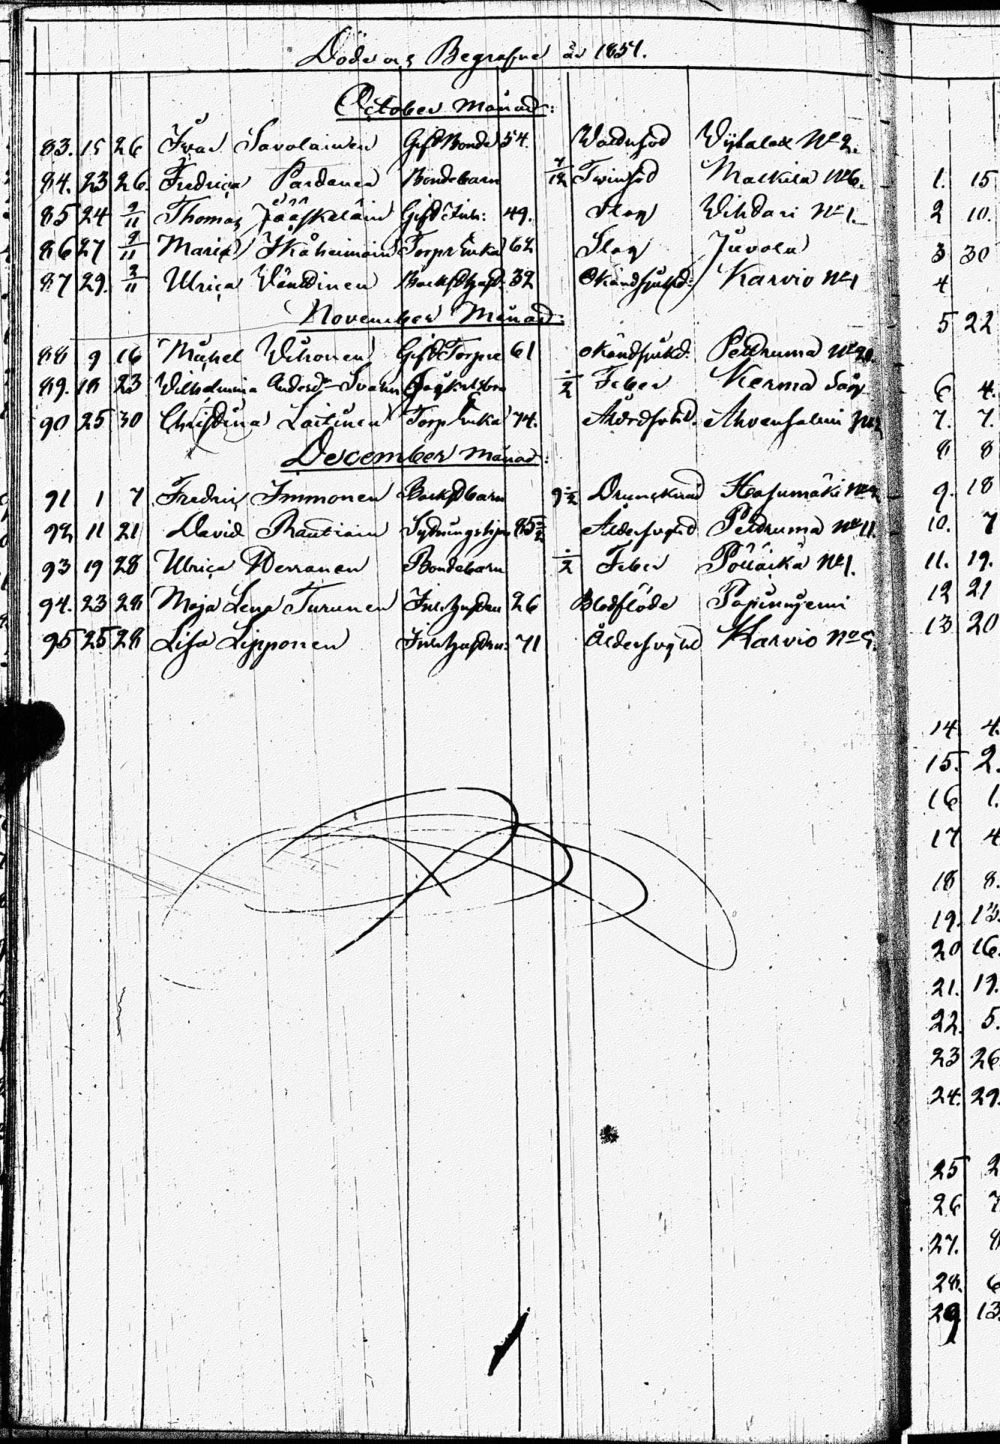 Döde och Begrafne år 1851.
October Månad:
83. 15 26 Ivar Savolainen Gift Bonde 54. Wådadöd Wiitalax No 2.
84. 23 26. Fredrica Pardanen Bondebarn 7/12 Twinsöd Malkila No 6.
85 24 2/11 Thomas Jääskeläin Gift Inh: 49. Slag Wihdari No 1
86 27 2/11 Maria Ikäheimoin Torpr Enka 62 Slag Juvola
87 29. 2/11 Ulrica Wänttinen 32 Okändsjukd: Karvio No 1
November Månad:
88 9 16 Michel Wihonen Gift Torpare 61 okändsjukd. Petruma No
89. 18 23 Wilhelmina Anders.Dr 1/2 Feber Kerma
90 25 30 Christina Laitinen Torp Enka 74. Ahvensalmi
December Månad:
91 1 7 Fredric Immonen Backst.barn 9 1/2 Drunknad Hasumäki No
92 11 21 David Rautiain 85 1/2 Ålderdom Petruma No 11.
93 19 28 Ulrica Werranen Bondebarn 1/2 Feber Pölläkä No 1.
94. 23 28 Maja Lena Turunen Inh. Hustru 26 Blodflöde Papinniemi
95 25 28 Lisa Lipponen Inh. Hustru: 71 Karvio No 5.
1. 15
2 10.
3 30
4
5 22
6 4.
7. 7.
8 8
9. 18
10. 7
11. 19.
12 21
13 20
14 4.
15. 2.
16 1.
17 4
18 8.
19. 13.
20 16.
21. 19.
22. 5.
23 26
24. 29.
25 2
26 7
27. 8
28. 6
29 13.